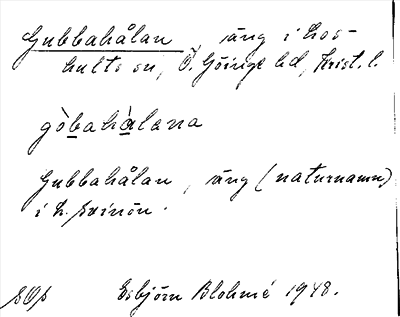 Gubbahålan, äng i Los-
hults sn, Ö. Göinge hd, Krist. l.
gòbahàlana
Gubbahålan, äng (naturnamn)
i h.
Esbjörn Blohmé 1948.